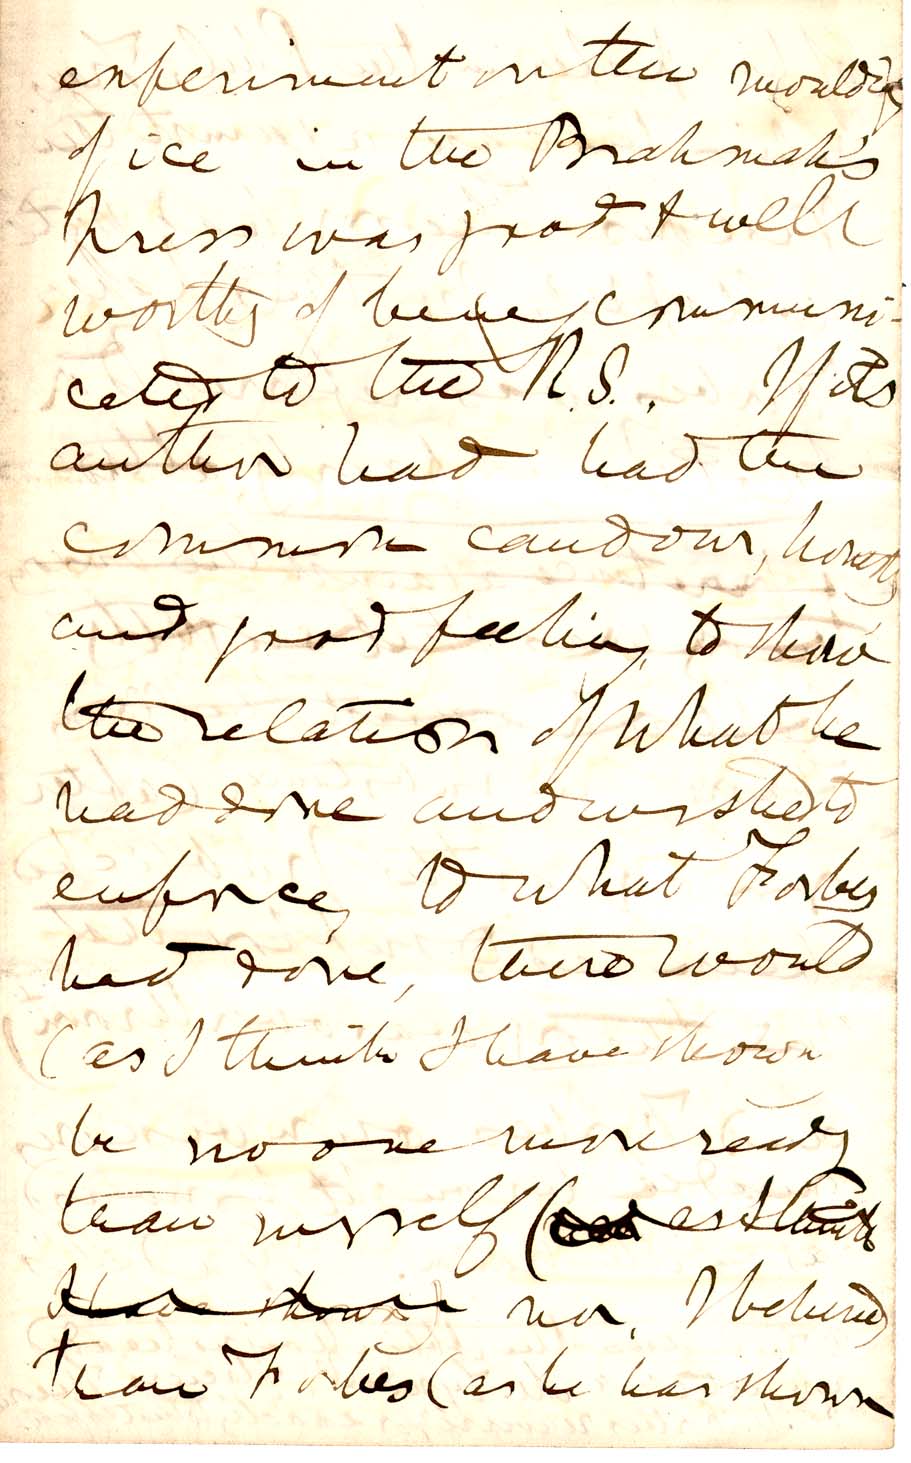 experiment on the moulding
of ice in the Brahmah's
Press was good & well
worthy of being communi-
cated to the R.S.. If its
author had had the
common candour, honesty
and good feeling, to show
the relation of what he
had done and wished to
enforce, to what Forbes
had done, there would
(as I think I have shown
be no one more ready
than myself ( as I think
I have shown) nor, I believe,
than Forbes (as he has shown